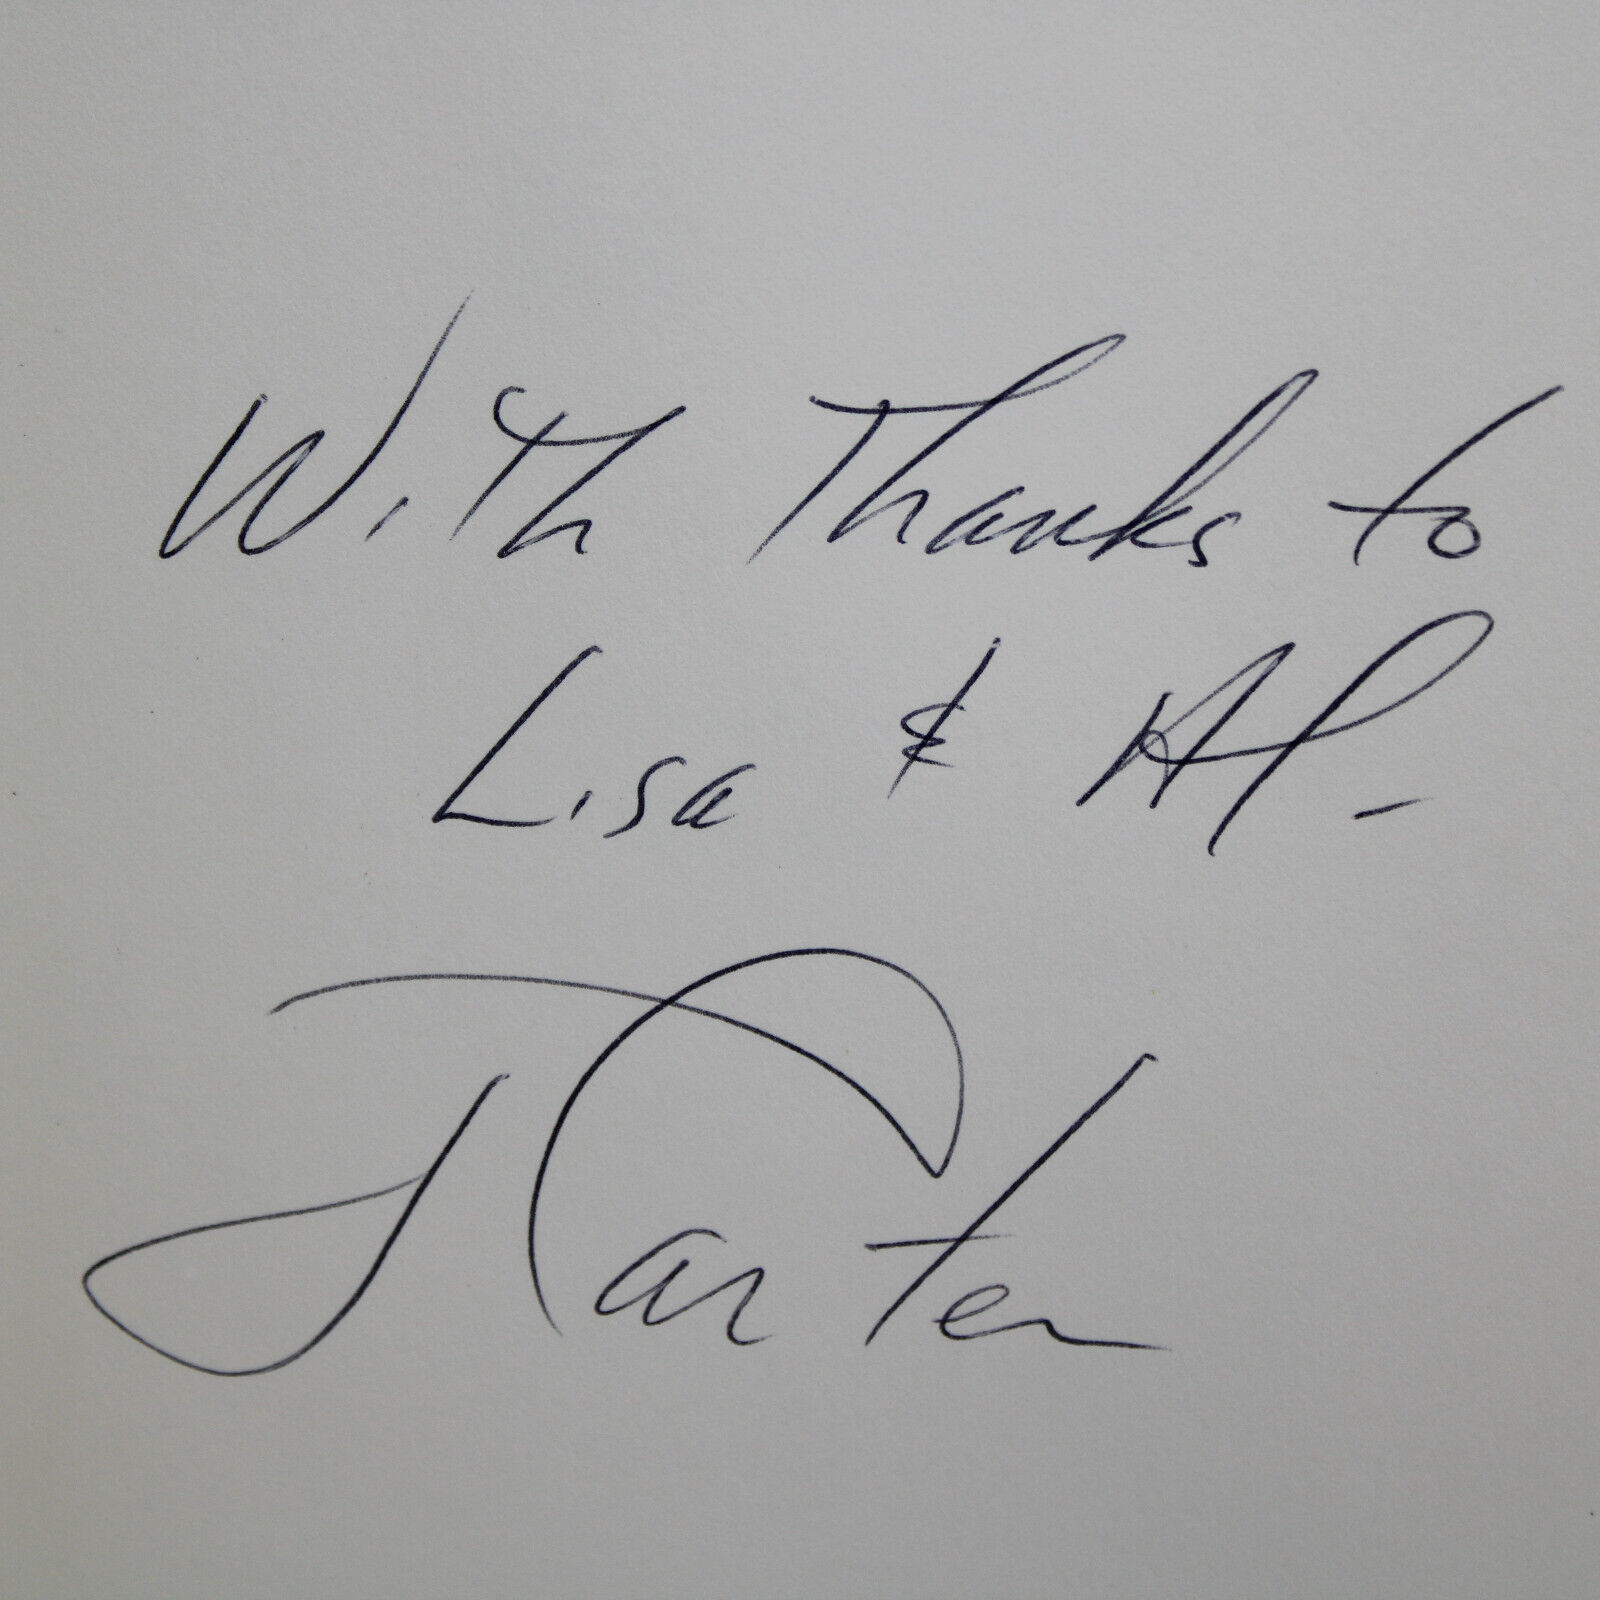 With Thanks to
Lisa & Al -
J Carter